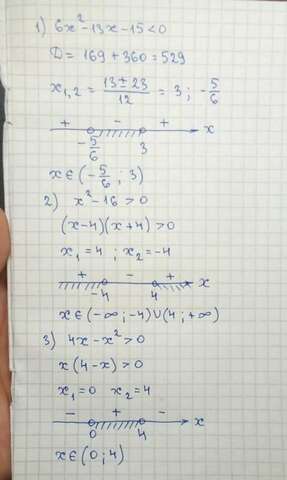 1) 6x²-13x-15<0
D = 169+360=529
x₁,₂ = (13±23)/12 = 3 ; -5/6
+ - + x
-5/6 3
x∈(-5/6 ; 3)
2) x²-16>0
(x-4)(x+4)>0
x₁=4 ; x₂=-4
+ - + x
-4 4
x∈(-∞ ; -4)∪(4 ; +∞)
3) 4x-x²>0
x(4-x)>0
x₁=0 x₂=4
- + - x
0 4
x∈(0 ; 4)